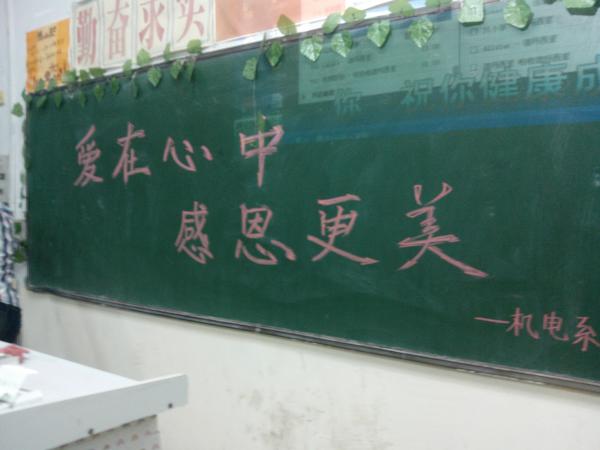 勤奋求实
你 祝你健康成
爱在心中
感恩更美
—机电系